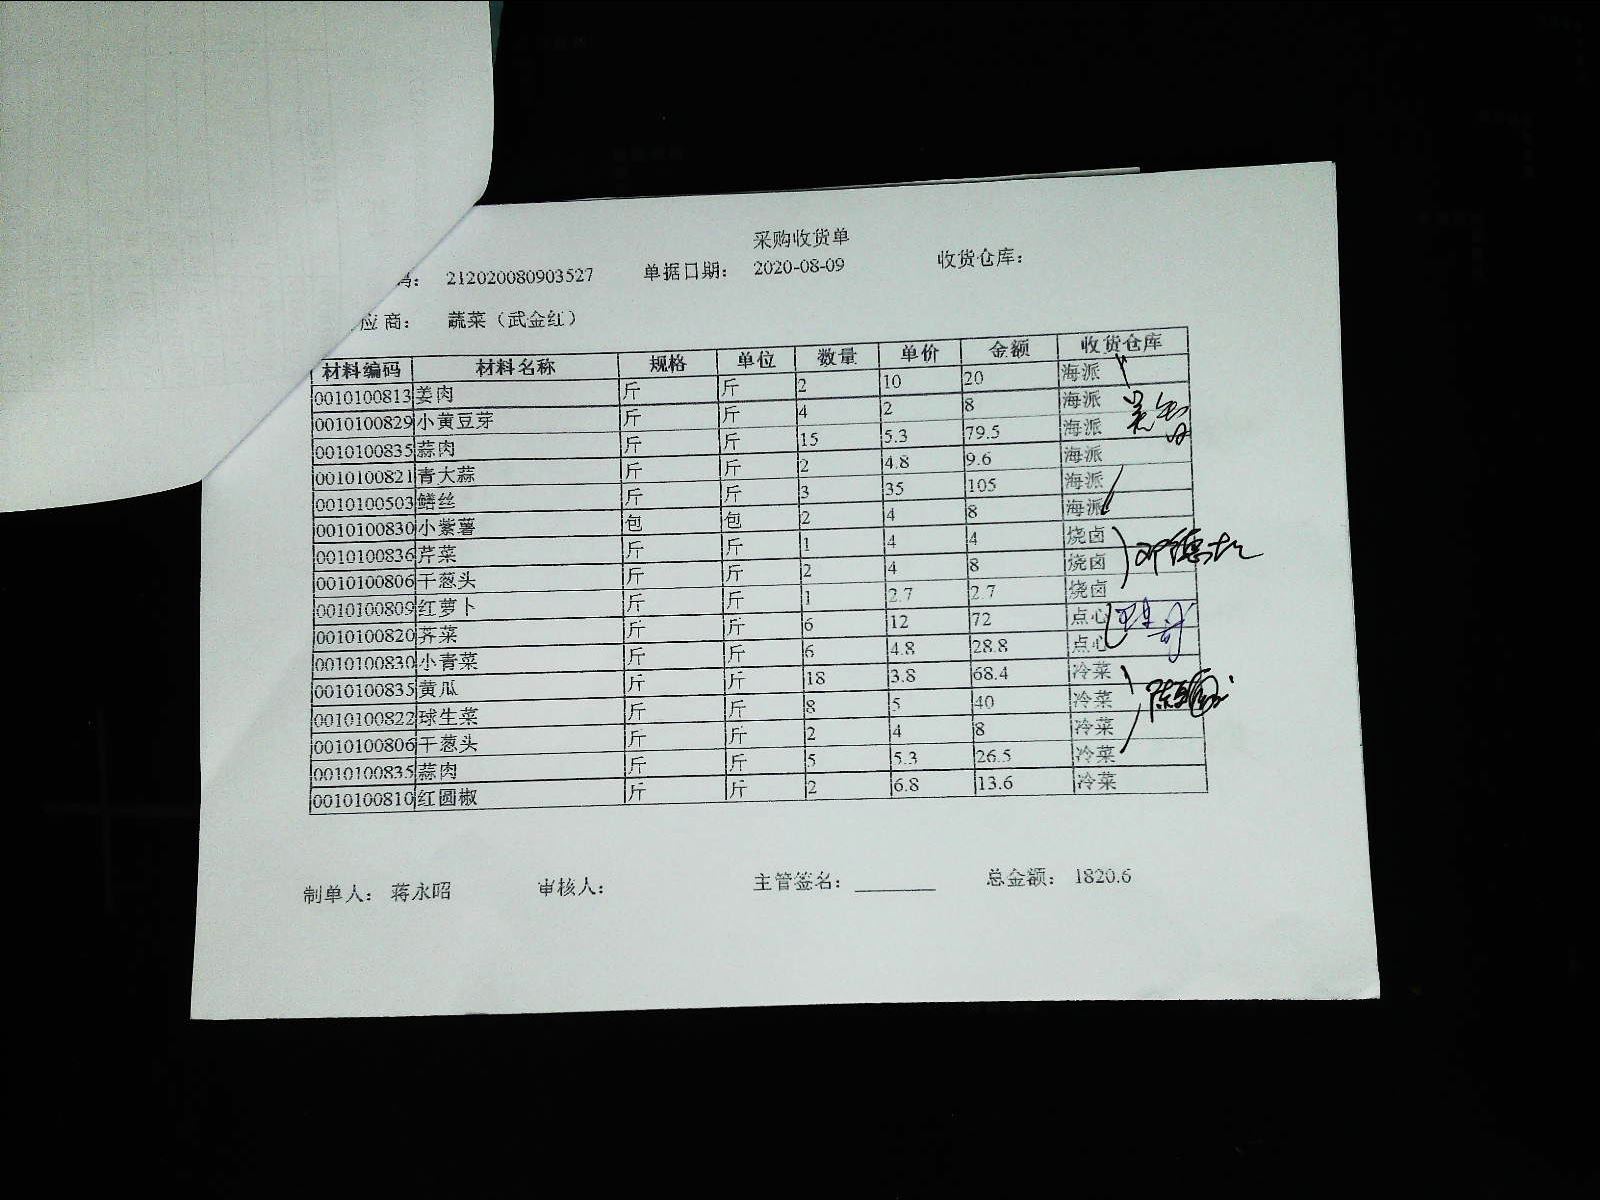 采购收货单
码： 212020080903527 单据日期： 2020-08-09 收货仓库：
应商： 蔬菜（武金红）
材料编码 材料名称 规格 单位 数量 单价 金额 收货仓库
0010100813 姜肉 斤 斤 2 10 20 海派
0010100829 小黄豆芽 斤 斤 4 2 8 海派
0010100835 蒜肉 斤 斤 15 5.3 79.5 海派
0010100821 青大蒜 斤 斤 2 4.8 9.6 海派
0010100503 鳝丝 斤 斤 3 35 105 海派
0010100830 小紫薯 包 包 2 4 8 海派
0010100836 芹菜 斤 斤 1 4 4 烧卤
0010100806 干葱头 斤 斤 2 4 8 烧卤
0010100809 红萝卜 斤 斤 1 2.7 2.7 烧卤
0010100820 荠菜 斤 斤 6 12 72 点心
0010100830 小青菜 斤 斤 6 4.8 28.8 点心
0010100835 黄瓜 斤 斤 18 3.8 68.4 冷菜
0010100822 球生菜 斤 斤 8 5 40 冷菜
0010100806 干葱头 斤 斤 2 4 8 冷菜
0010100835 蒜肉 斤 斤 5 5.3 26.5 冷菜
0010100810 红圆椒 斤 斤 2 6.8 13.6 冷菜
制单人： 蒋永昭 审核人： 主管签名： 总金额： 1820.6